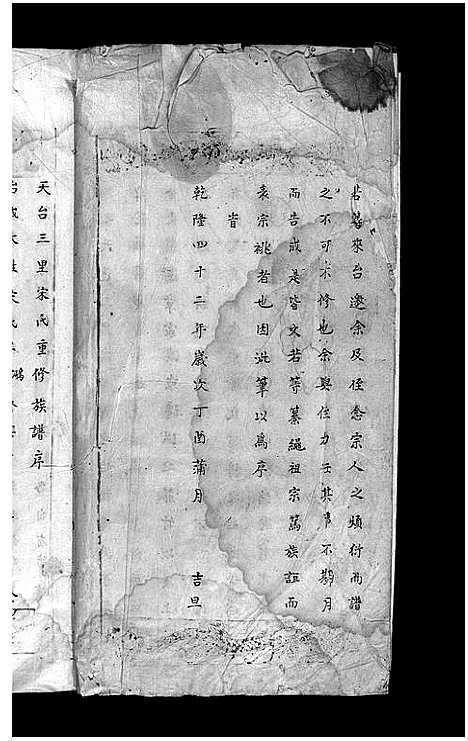 若等來台邀余及侄念宗人之頻衍而譜
之不可不修也余與侄力任其事不期月
而告成是皆文若等纂繩祖宗篤族誼而
衷宗祧者也因泚筆以為序
旹
乾隆四十二年歲次丁酉蒲月 吉旦
天台三里宋氏重修族譜序